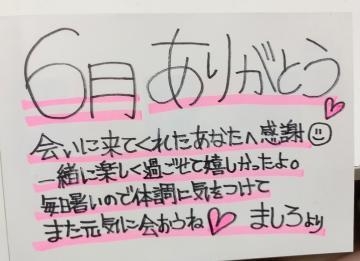 6月ありがとう
会いに来てくれたあなたへ感謝
一緒に楽しく過ごせて嬉しかったよ。
毎日暑いので体調に気をつけて
また元気に会おうね♡ ましろより